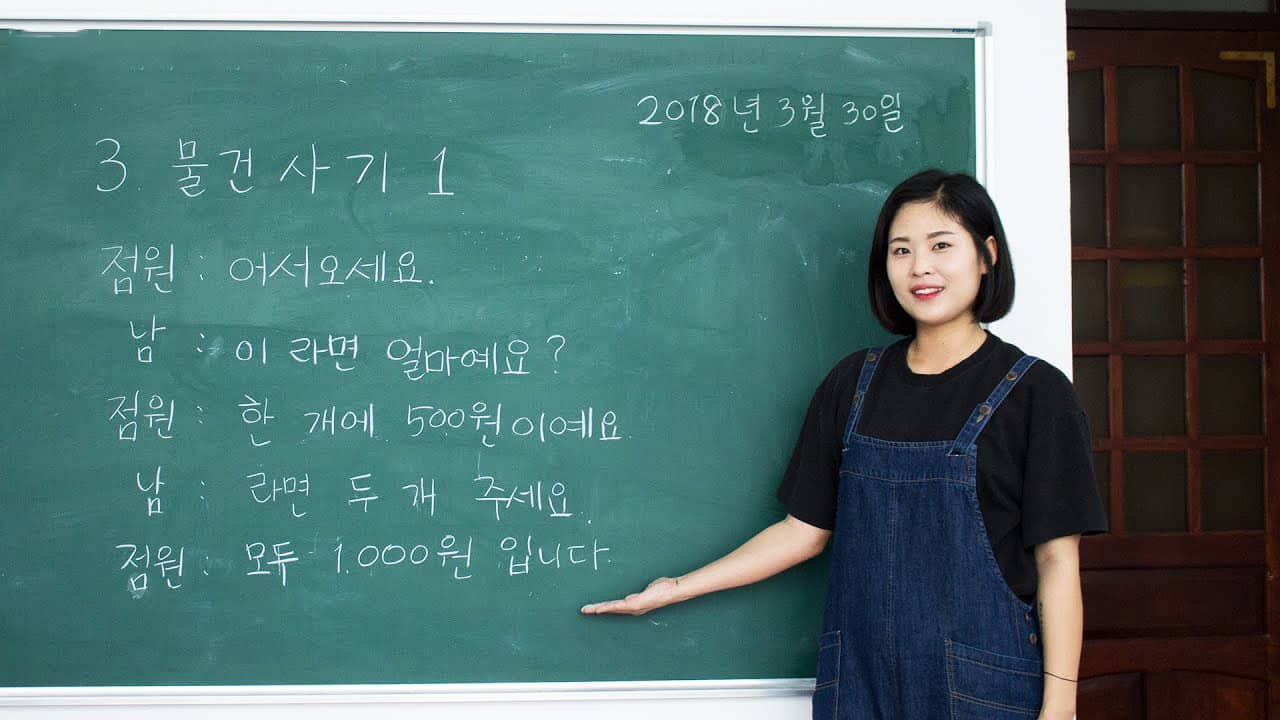 2018년 3월 30일
3. 물건사기 1
점원 : 어서오세요.
남 : 이 라면 얼마예요?
점원 : 한 개에 500원이예요.
남 : 라면 두 개 주세요.
점원 : 모두 1.000원 입니다.